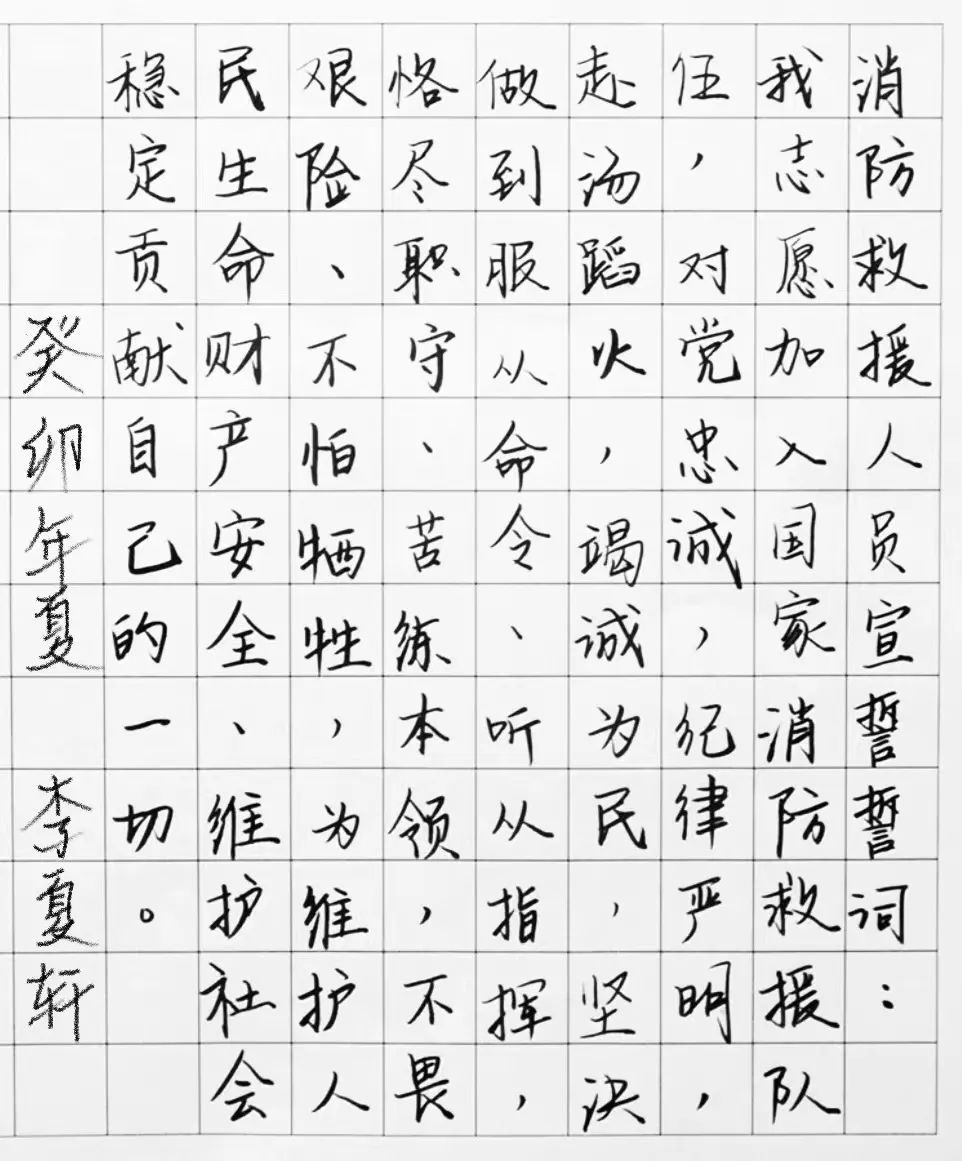 消防救援人员宣誓誓词：
我志愿加入国家消防救援队
伍，对党忠诚，纪律严明，
赴汤蹈火，竭诚为民，坚决
做到服从命令、听从指挥，
恪尽职守、苦练本领，不畏
艰险、不怕牺牲，为维护人
民生命财产安全、维护社会
稳定贡献自己的一切。
癸卯年夏 李夏轩